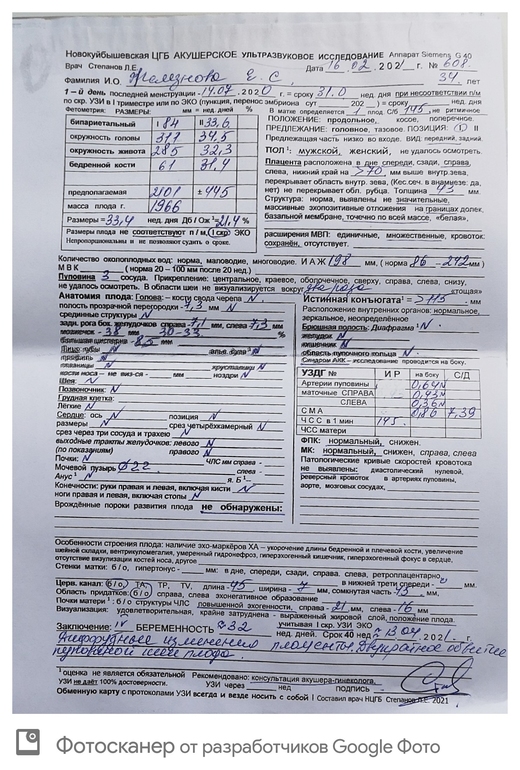 Новокуйбышевская ЦГБ АКУШЕРСКОЕ УЛЬТРАЗВУКОВОЕ ИССЛЕДОВАНИЕ Аппарат Siemens G 40
Врач Степанов Л.Е. Дата 16.02.2021 г. № 608
Фамилия И.О. Железнова Е. С, 34 лет
1 – й день последней менструации - 14.07.2020 г. = сроку 31.0 нед. дня при несоответствии п/м
по скр. УЗИ в I триместре или по ЭКО (пункция, перенос эмбриона сут 202 ) = сроку нед. дня
Фетометрия: РАЗМЕРЫ: мм = нед. дней
В матке определяется 1 плод С/б 145, не ритмичное
бипариетальный 84 33,6
ПОЛОЖЕНИЕ: продольное, косое, поперечное.
ПРЕДЛЕЖАНИЕ: головное, тазовое. ПОЗИЦИЯ: I II
окружность головы 317 34,5
Предлежащая часть низко во входе. ВИД: передний, задний
окружность живота 285 32,3
ПОЛ ¹: мужской, женский, не удалось осмотреть.
бедренной кости 61 31,4
Плацента расположена в дне спереди, сзади, справа,
слева, нижний край на >70, мм выше внутр.зева,
перекрывает область внутр. зева, (Кес.сеч. в анамнезе: да,
нет) не перекрывает обл. рубца. Толщина 43 мм.
предполагаемая 2101 ± 445
масса плода г. 1966
Структура: норма, выявлены не значительные,
массивные эхопозитивные отложения на границах долек,
базальной мембране, точечно по всей массе, «белая»,
Размеры = 33,4 нед. дня Дб / Ож ¹ = 21,4 %
Размеры плода не соответствуют п / м, I скр ЭКО
Непропорциональны и не позволяют судить о сроке.
расширения МВП: единичные, множественные, кровоток:
сохранён, отсутствует.
Количество околоплодных вод: норма, маловодие, многоводие. И А Ж 198 мм, ( норма 86 – 242 мм )
М В К ( норма 20 – 100 мм после 20 нед.)
Пуповина 3 сосуда. Прикрепление: центральное, краевое, оболочечное, сверху, снизу, справа, слева,
не удалось осмотреть. В области шеи не визуализируется вокруг «тощая»
Анатомия плода: Голова: – кости свода черепа N
Истинная конъюгата ¹ = >115 мм
полость прозрачной перегородки - 7,3 мм N
Расположение внутренних органов: нормальное,
зеркальное, неопределённое
срединные структуры N
задн. рога бок. желудочков справа 7,1 мм, слева 7,3 мм
Брюшная полость: Диафрагма ¹ N
мозжечок - 38 мм
желудок N
большая цистерна - 8,5 мм
кишечник N
Лицо: губы N
область пупочного кольца N
профиль N
Синдром АКК – исследование проводится на боку.
глазницы N хрусталики N
кости носа – не виз-ся - мм ноздри N
УЗДГ № И Р на боку С/Д
Шея: N
Артерии пуповины 0,64N
Позвоночник: N
маточные СПРАВА 0,43N
Грудная клетка:
СЛЕВА 0,36N
Лёгкие N
С М А 0,86 7,39
Сердце: ось N позиция N
Ч С С в 1 мин 145.
размеры N срез четырёхкамерный N
ЧСС матери
срез через три сосуда и трахею N
ФПК: нормальный, снижен.
выходные тракты желудочков: левого N
МК: нормальный, снижен, справа, слева
(по показаниям) правого N
Патологические кривые скоростей кровотока
Почки: N ЧЛС мм справа -
не выявлены: диастолический нулевой,
слева -
реверсный кровоток в артериях пуповины,
Мочевой пузырь ∅22.
аорте, мозговых сосудах,
Анус ¹ N я. Б ¹ –
Конечности: руки правая и левая, включая кисти N
ноги правая и левая, включая стопы N
Врождённые пороки развития плода не обнаружены:
Особенности строения плода: наличие эхо-маркёров ХА – укорочение длины бедренной и плечевой кости, увеличение
шейной складки, вентрикуломегалия, умеренный гидронефроз, гиперэхогенный кишечник, гиперэхогенный фокус в сердце,
отсутствие визуализации костей носа, другое
Стенки матки: б / о, гипертонус - мм, в дне, спереди, сзади, справа, слева, ретроплацентарно
Церв. канал: б / о, ТА, ТР, TV, длина - 45, ширина - 7 мм, сомкнутая часть 45 мм,
Область придатков: б / о, справа, слева эхонегативное образование
Почки матери ¹: б / о структуры ЧЛС повышенной эхогенности, справа - 21 мм, слева - 16 мм
Визуализация: удовлетворительная, крайне затруднена – выраженный жировой слой, положение плода.
Заключение: IV БЕРЕМЕННОСТЬ ≈ 32 нед. дней. Срок 40 нед ≈ 13.04.2021 г.
учитывая I скр. УЗИ ЭКО
Диффузные изменения плаценты. Двукратное обвитие
пуповиной шеи плода.
¹ оценка не является обязательной Рекомендовано: консультация акушера-гинеколога.
УЗИ не даёт 100% достоверности. УЗИ через нед подпись
Обменную карту с протоколами УЗИ всегда и везде носить с собой ! Составил врач НЦГБ Степанов Л.Е. 2021
Фотосканер от разработчиков Google Фото